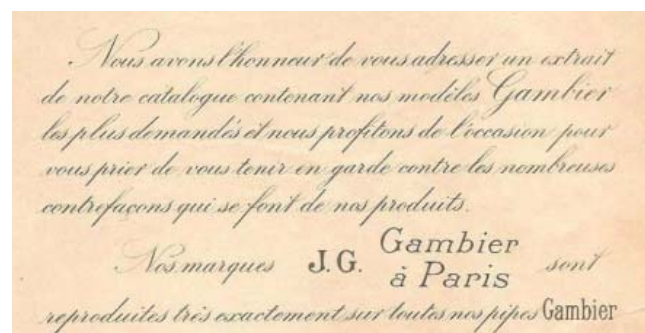 Nous avons l'honneur de vous adresser un extrait
de notre catalogue contenant nos modèles Gambier
les plus demandés et nous profitons de l'occasion pour
vous prier de vous tenir en garde contre les nombreuses
contrefaçons qui se font de nos produits.
Nos marques J.G. Gambier à Paris sont
reproduites très exactement sur toutes nos pipes Gambier